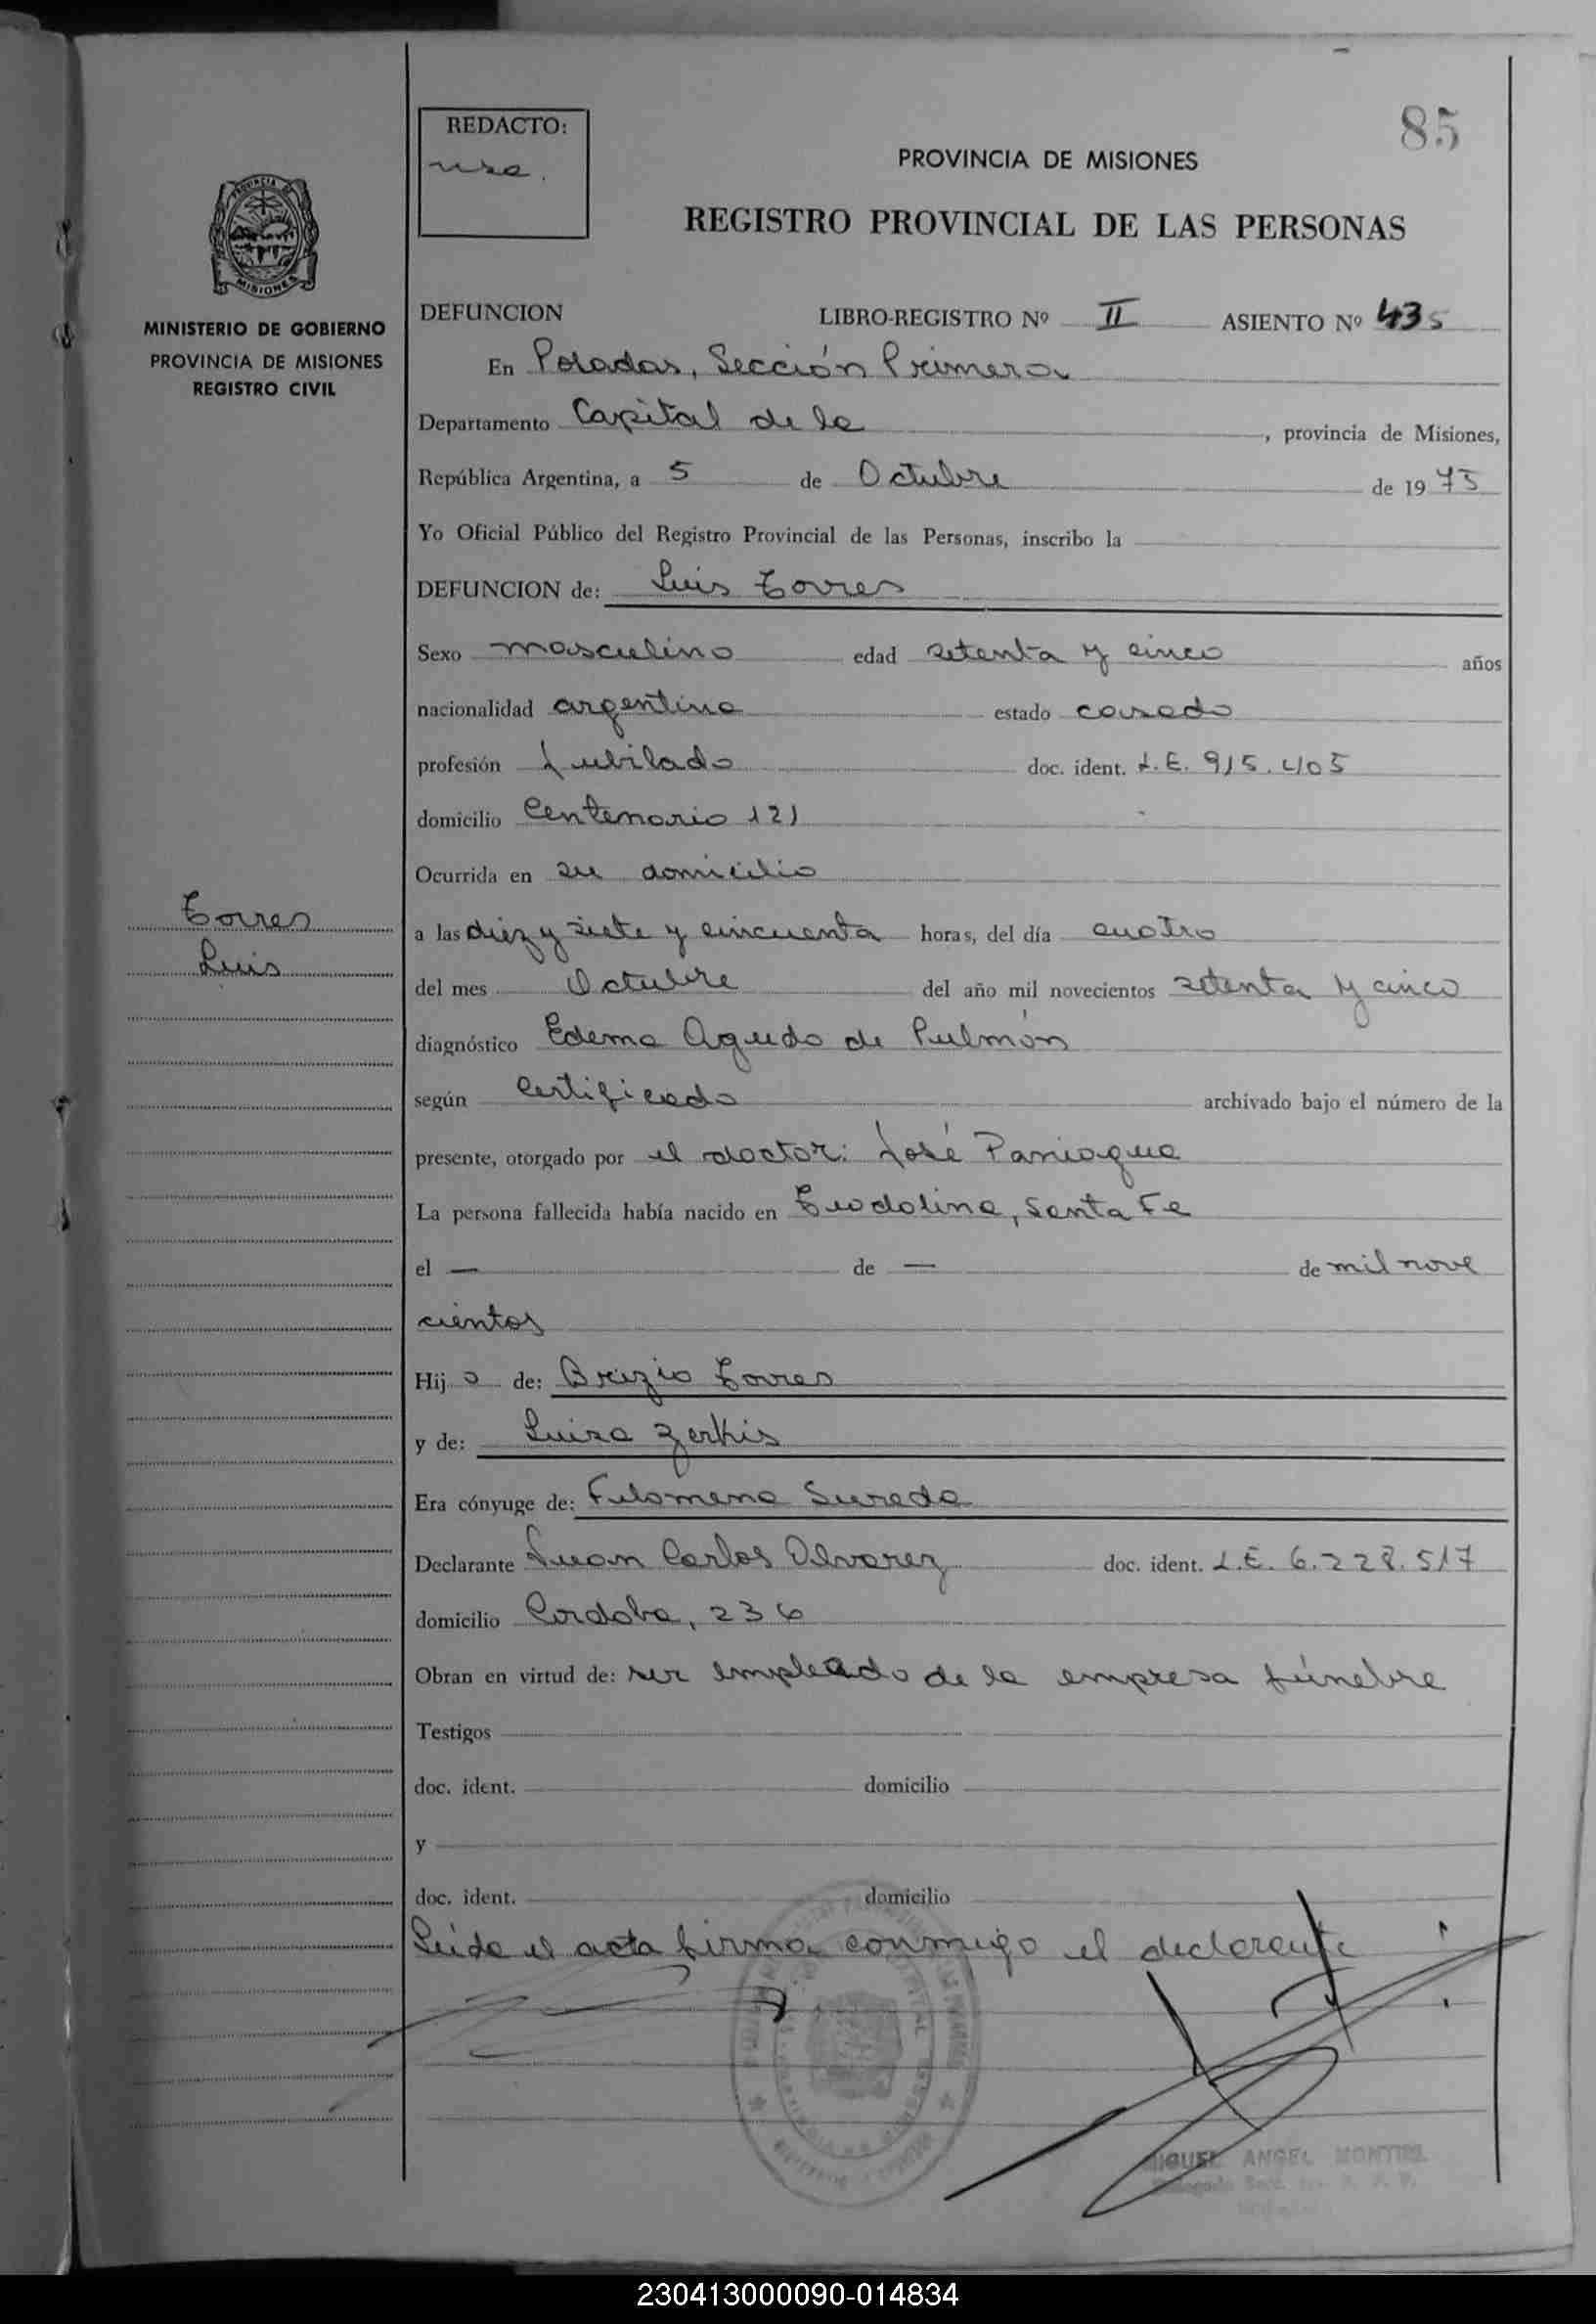 85
REDACTO:
PROVINCIA DE MISIONES
REGISTRO PROVINCIAL DE LAS PERSONAS
MISIONES
MINISTERIO DE GOBIERNO
PROVINCIA DE MISIONES
REGISTRO CIVIL
DEFUNCION LIBRO-REGISTRO Nº II ASIENTO Nº 435
En Posadas, Sección Primera
Departamento Capital de la, provincia de Misiones,
República Argentina, a 5 de Octubre de 1975
Yo Oficial Público del Registro Provincial de las Personas, inscribo la
DEFUNCION de: Luis Torres
Sexo masculino edad setenta y cinco años
nacionalidad argentina estado casado
profesión Jubilado doc. ident. L.E. 915.405
domicilio Centenario 121
Ocurrida en su domicilio
Torres
Luis
a las diez y siete y cincuenta horas, del día cuatro
del mes Octubre del año mil novecientos setenta y cinco
diagnóstico Edema Agudo de Pulmón
según certificado archivado bajo el número de la
presente, otorgado por el doctor: José Paniagua
La persona fallecida había nacido en Teodolina, Santa Fe
el — de — de mil nove
cientos
Hijo de: Brizio Torres
y de: Luisa Zerkis
Era cónyuge de: Filomena Sureda
Declarante Juan Carlos Alvarez doc. ident. L.E. 6.228.517
domicilio Cordoba, 236
Obran en virtud de: ser empleado de la empresa fúnebre
Testigos
doc. ident. domicilio
y
doc. ident. domicilio
Leída el acta firma conmigo el declarante
MIGUEL ANGEL MONTIEL
230413000090-014834